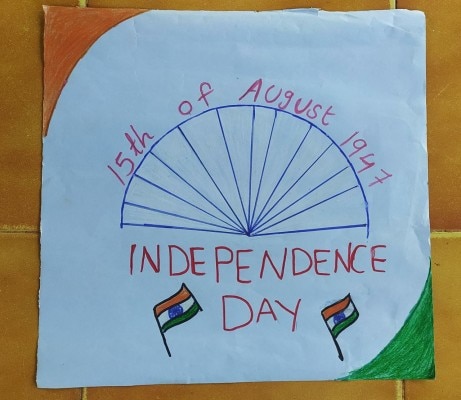 15th of August 1947
INDEPENDENCE
DAY